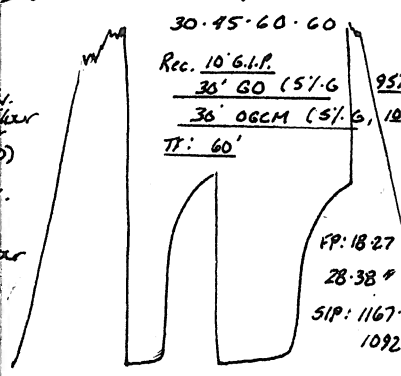 30·45·60·60
Rec. 10' G.I.P.
30' GO (5%.G 95%
30' OGCM (5%.G, 10
TF: 60'
FP: 18·27
28·38 "
SIP: 1167·
1092